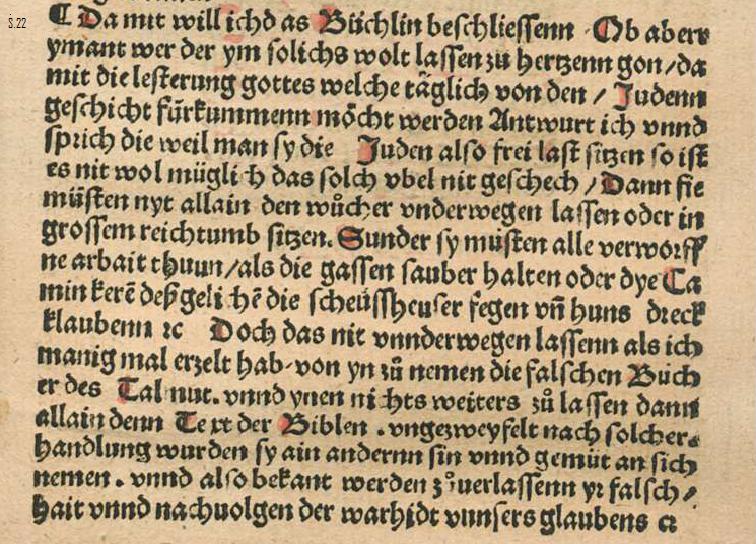 S.22
⸿ Damit will ichd as Büchlin beschliessenn Ob aberr
ymant wer der ym solichs wolt lassen zu hertzenn gon/da
mit die lesterung gottes welche täglich von den / Judenn
geschicht fürkummenn möcht werden Antwurt ich vnnd
sprich die weil man sy die Juden also frei last sitzen so ist
es nit wol mügli ch das solch vbel nit geschech / Dann sie
müsten nyt allain den wůcher vnderwegen lassen oder in
grossem reichtumb sitzen. Sunder sy müsten alle verworff
ne arbait thuun/als die gassen sauber halten oder dye Ca
min kerē deßgeli chē die scheüssheuser fegen vn̄ huns dreck
klaubenn ꝛc Doch das nit vnnderwegen lassenn als ich
manig mal erzelt hab von yn zů nemen die falschen Buch
er des Tal nut. vnnd ynen ni chts weiters zů lassen dann
allain denn Te xt der Biblen . vngezweyfelt nach solcher
handlung wurden sy ain andernn sin vnnd gemüt an sich
nemen . vnnd also bekant werden zůuerlassenn yr falsch/
hait vnnd nachuolgen der warhidt vnnsers glaubens ꝛc